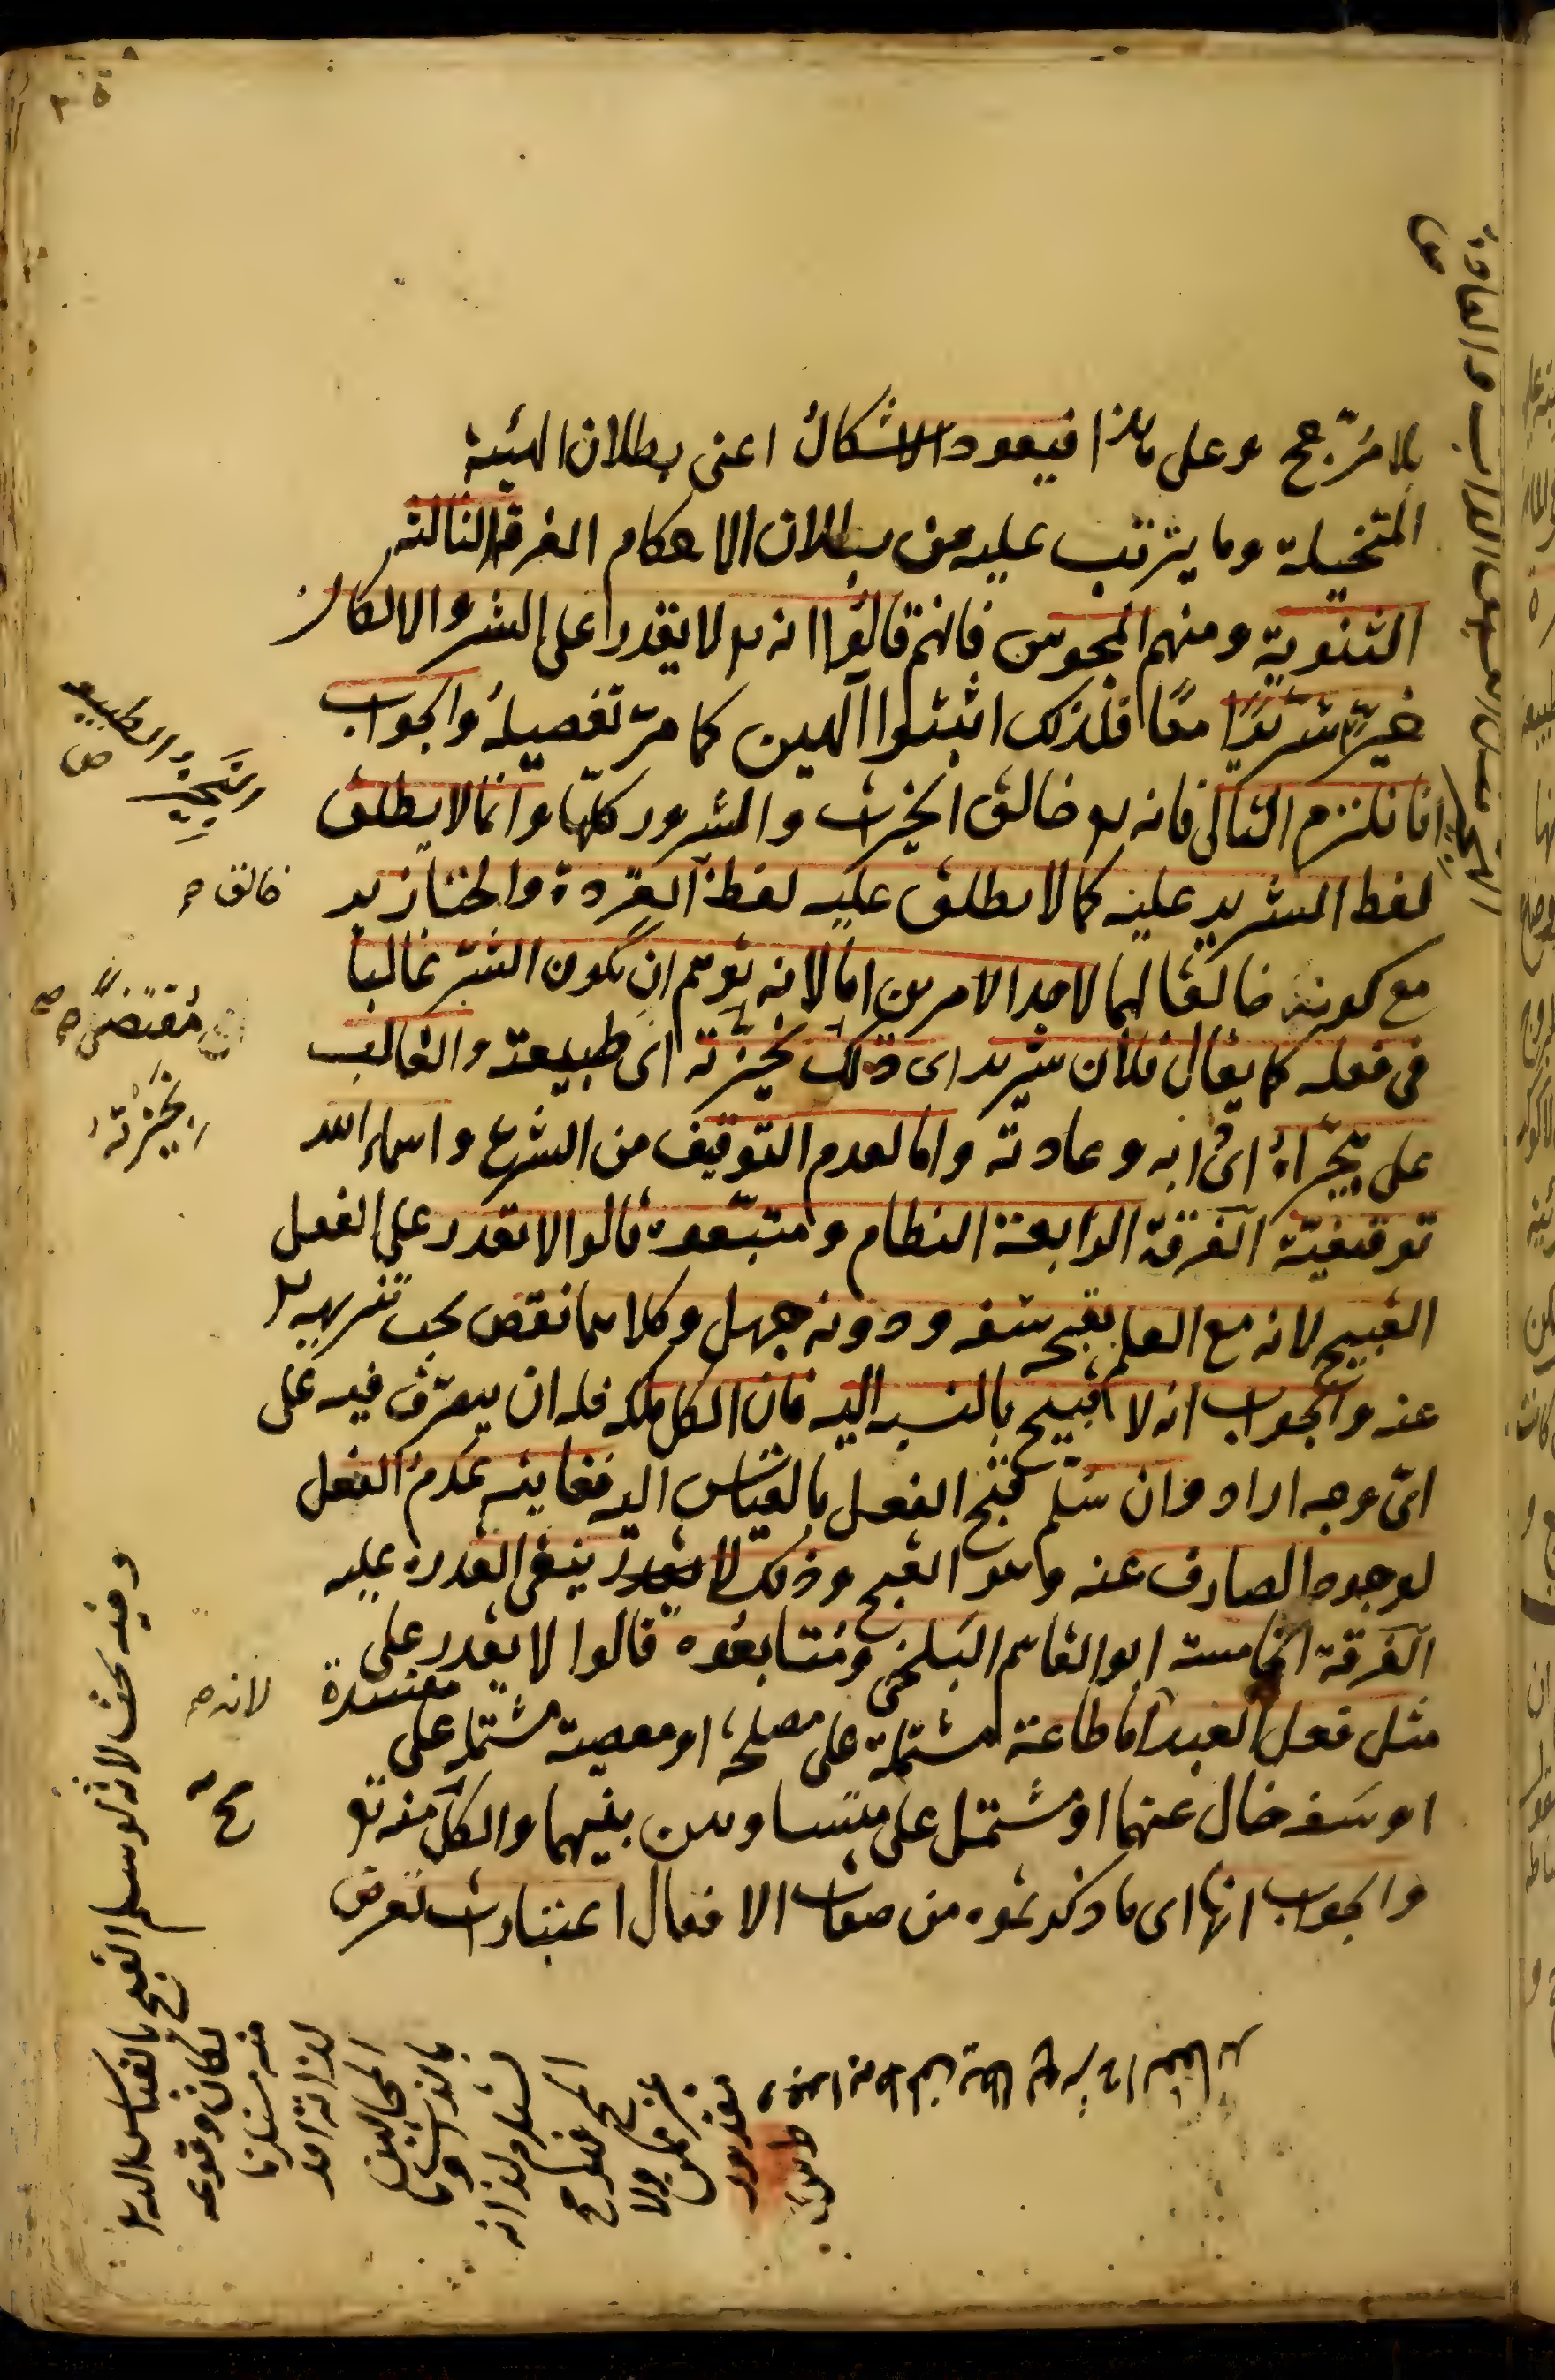 بلا مرّجح وعلى هذا فيعود الاشكال اعنى بطلان الهيئة
المتخيلة وما يترتب عليه من بطلان الاحكام الفرقة الثالثة
الثنوية ومنهم المجوس فانهم قالوا انه لا يقدر على الشر والا لكان
خيّرا شريرًا معًا فلذلك اثبتوا آلهين كما مرّ تفصيله والجواب
انا نلتزم التالى فانه خالق الخيرات والشرور كلها وانما لا يطلق
لفظ الشرير عليه كما لا يطلق عليه لفظ القردة والخنازير
مع كونه خالقا لهما لاحد الامرين اما لانه يوهم ان يكون الشر غالبا
فى فعله كما يقال فلان شرير اى ذلك نحيزته اى طبيعته والغالب
على هجّيراه اى دابه وعادته واما لعدم التوقيف من الشرع واسماء الله
توقيفية الفرقة الرابعة النظام ومتبعوه قالوا لا يقدر على الفعل
القبيح لانه مع العلم بقبحه سفه ودونه جهل وكلاهما نقص يجب تنزيهه
عنه والجواب انه لا قبيح بالنسبه اليه فان الكل ملكه فله ان يتصرف فيه على
اىّ وجه اراد وان سلّم قبح الفعل بالقياس اليه فغايته عدم الفعل
لوجود الصارف عنه وهو القبح وذلك لا ينفى القدرة عليه
الفرقة الخامسة ابو القاسم البلخى ومتابعوه قالوا لا يقدر على
مثل فعل العبد اما طاعة مشتملة على مصلحة او معصية مشتملة على مفسدة
او سفه خال عنهما او مشتمل على متساويين بينهما والكل منه
والجواب انها اى ما ذكرتموه من صفات الافعال اعتبارات تعرض
النحيز والطبيعه
خالق
مقتضى
نحيزته
لانه
وفيه بحث لانه لو سلم القبح بالقياس اليه
لكان وقوعه
منه مستلزما